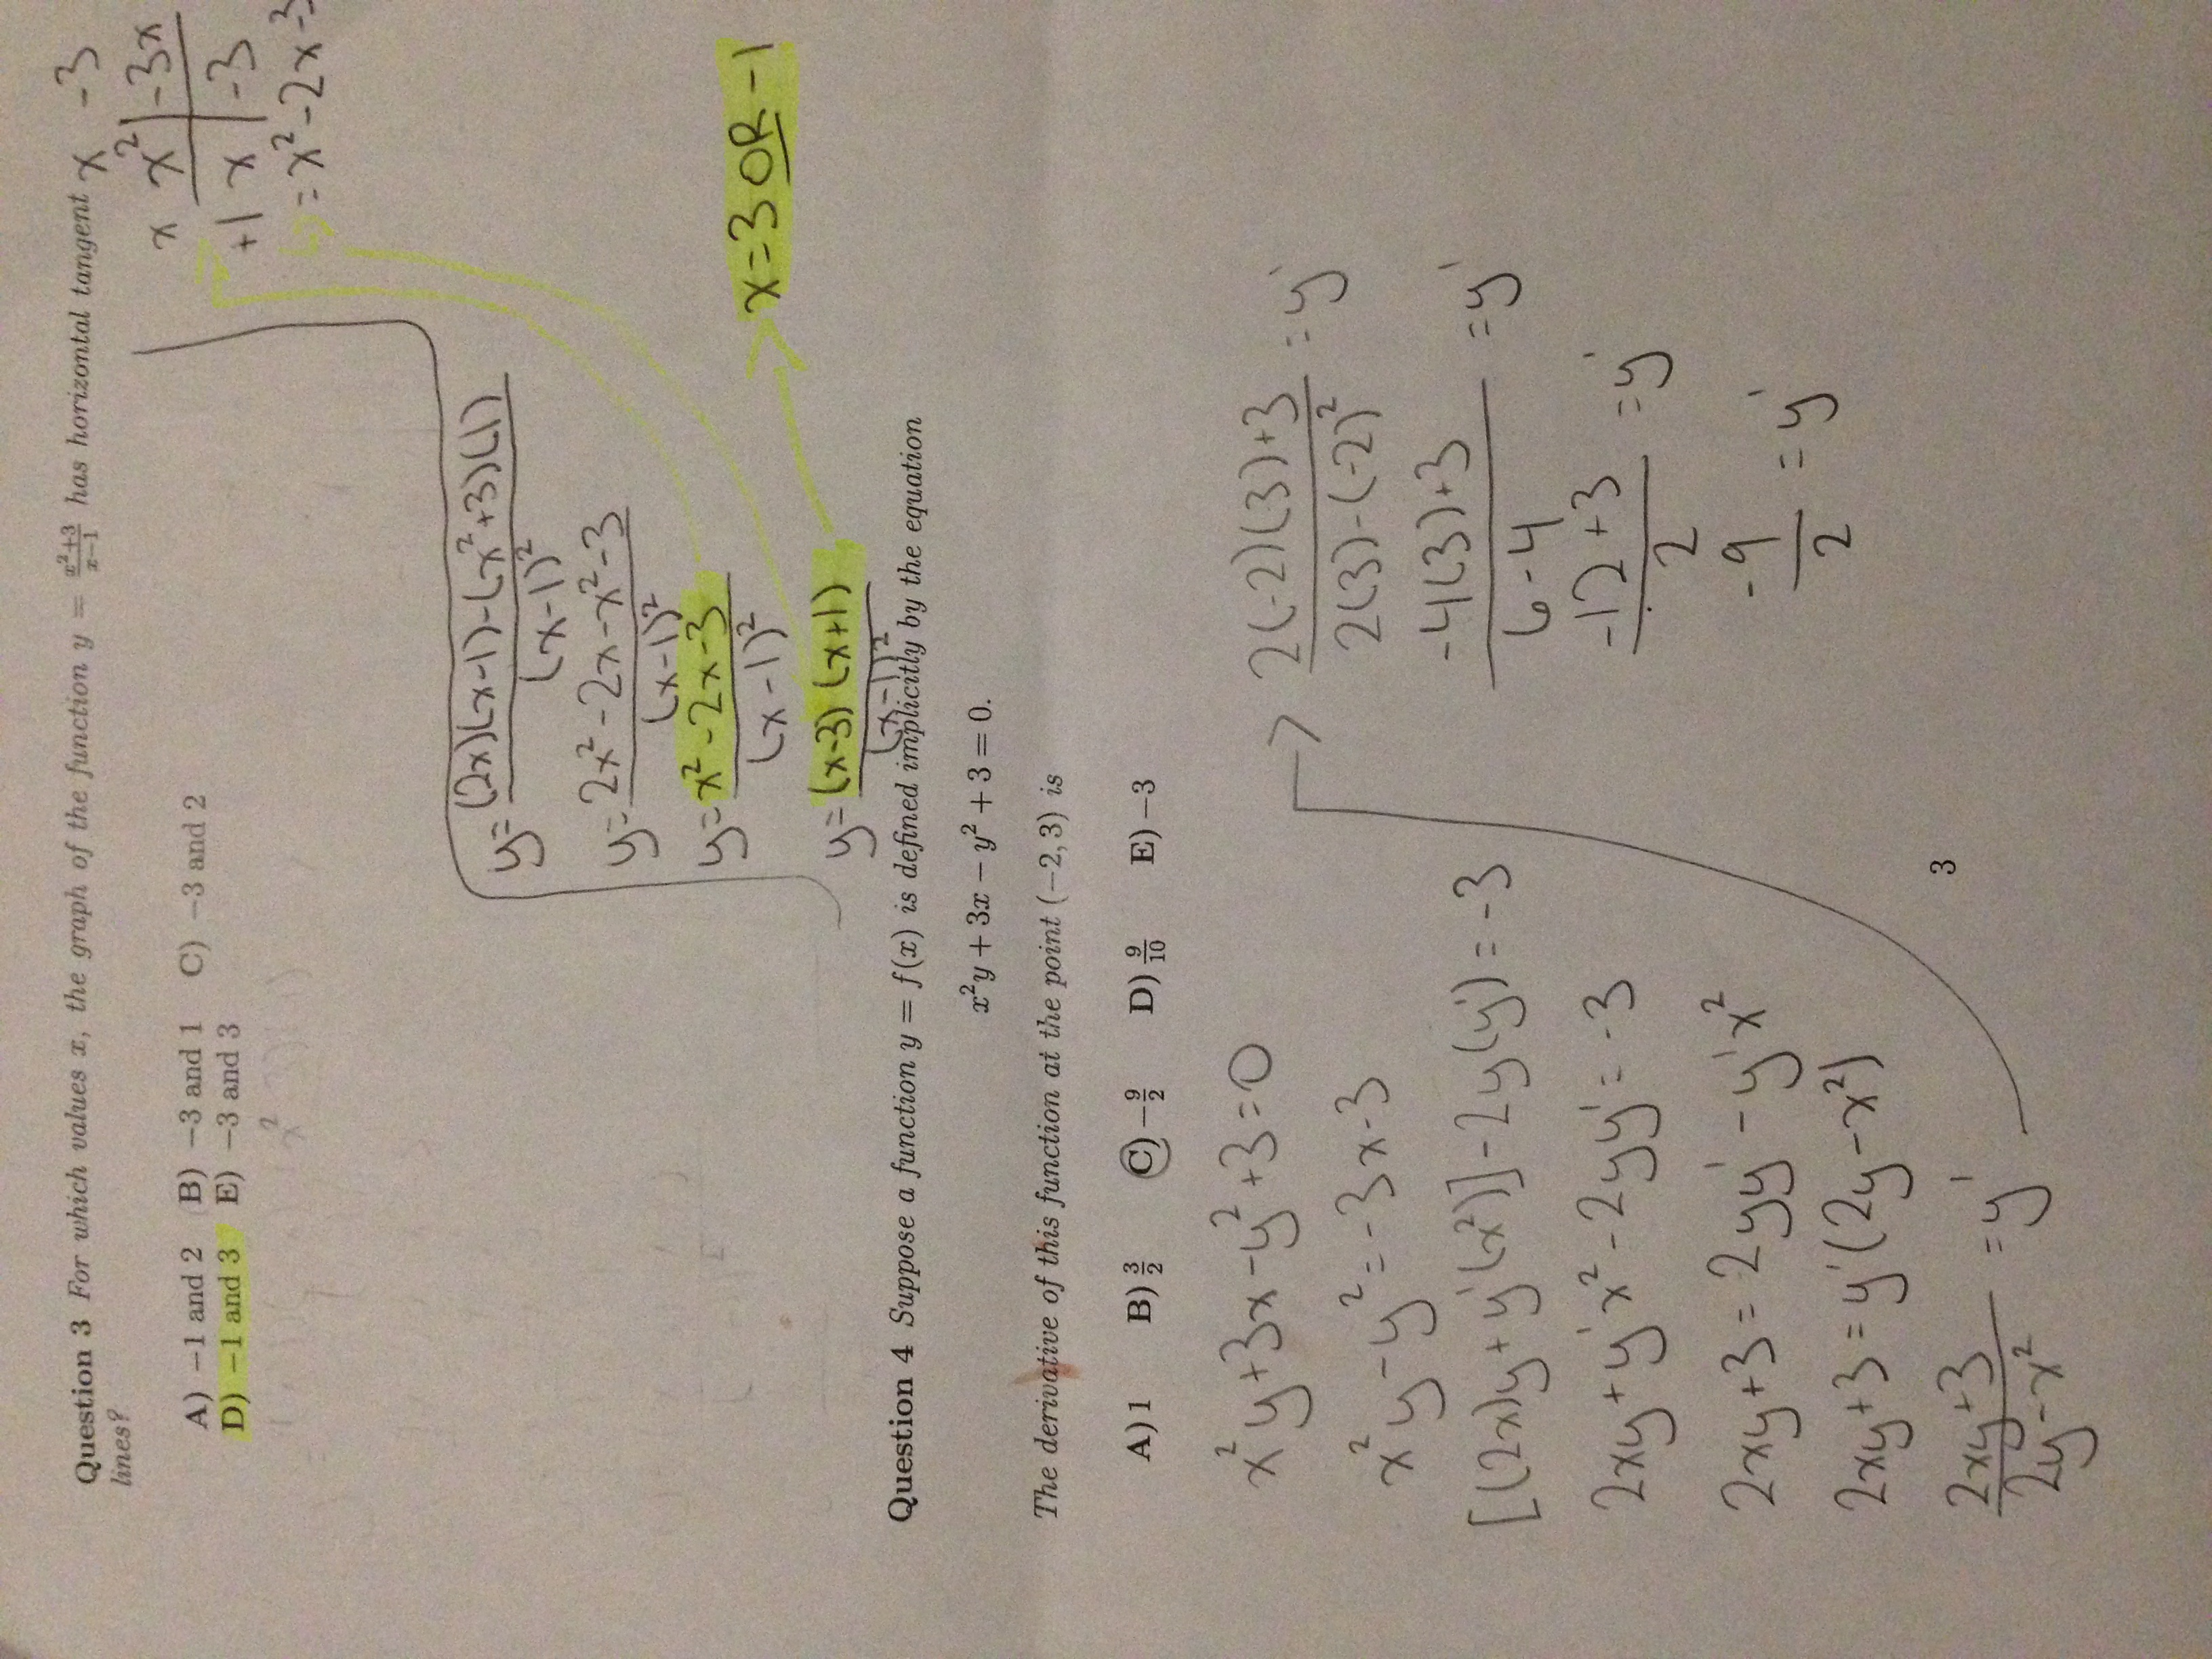 Question 3 For which values x, the graph of the function y = \frac{x²+3}{x−1} has horizontal tangent
lines?
A) −1 and 2 B) −3 and 1 C) −3 and 2
D) −1 and 3 E) −3 and 3
x -3
x x² -3x
+1 x -3
= x² - 2x - 3
y = \frac{(2x)(x-1)-(x²+3)(1)}{(x-1)²}
y = \frac{2x²-2x-x²-3}{(x-1)²}
y = \frac{x²-2x-3}{(x-1)²}
y = \frac{(x-3)(x+1)}{(x-1)²}
x = 3 OR -1
Question 4 Suppose a function y = f(x) is defined implicitly by the equation
x²y + 3x − y² + 3 = 0.
The derivative of this function at the point (−2, 3) is
A) 1 B) \frac{3}{2} C) −\frac{9}{2} D) \frac{9}{10} E) −3
x²y+3x-y²+3=0
x²y-y²=-3x-3
[(2x)y+y'(x²)]-2y(y')=-3
2xy+y'x²-2yy'=-3
2xy+3=2yy'-y'x²
2xy+3=y'(2y-x²)
\frac{2xy+3}{2y-x²}=y'
\frac{2(-2)(3)+3}{2(3)-(-2)²}=y'
\frac{-4(3)+3}{6-4}=y'
\frac{-12+3}{2}=y'
\frac{-9}{2}=y'
3